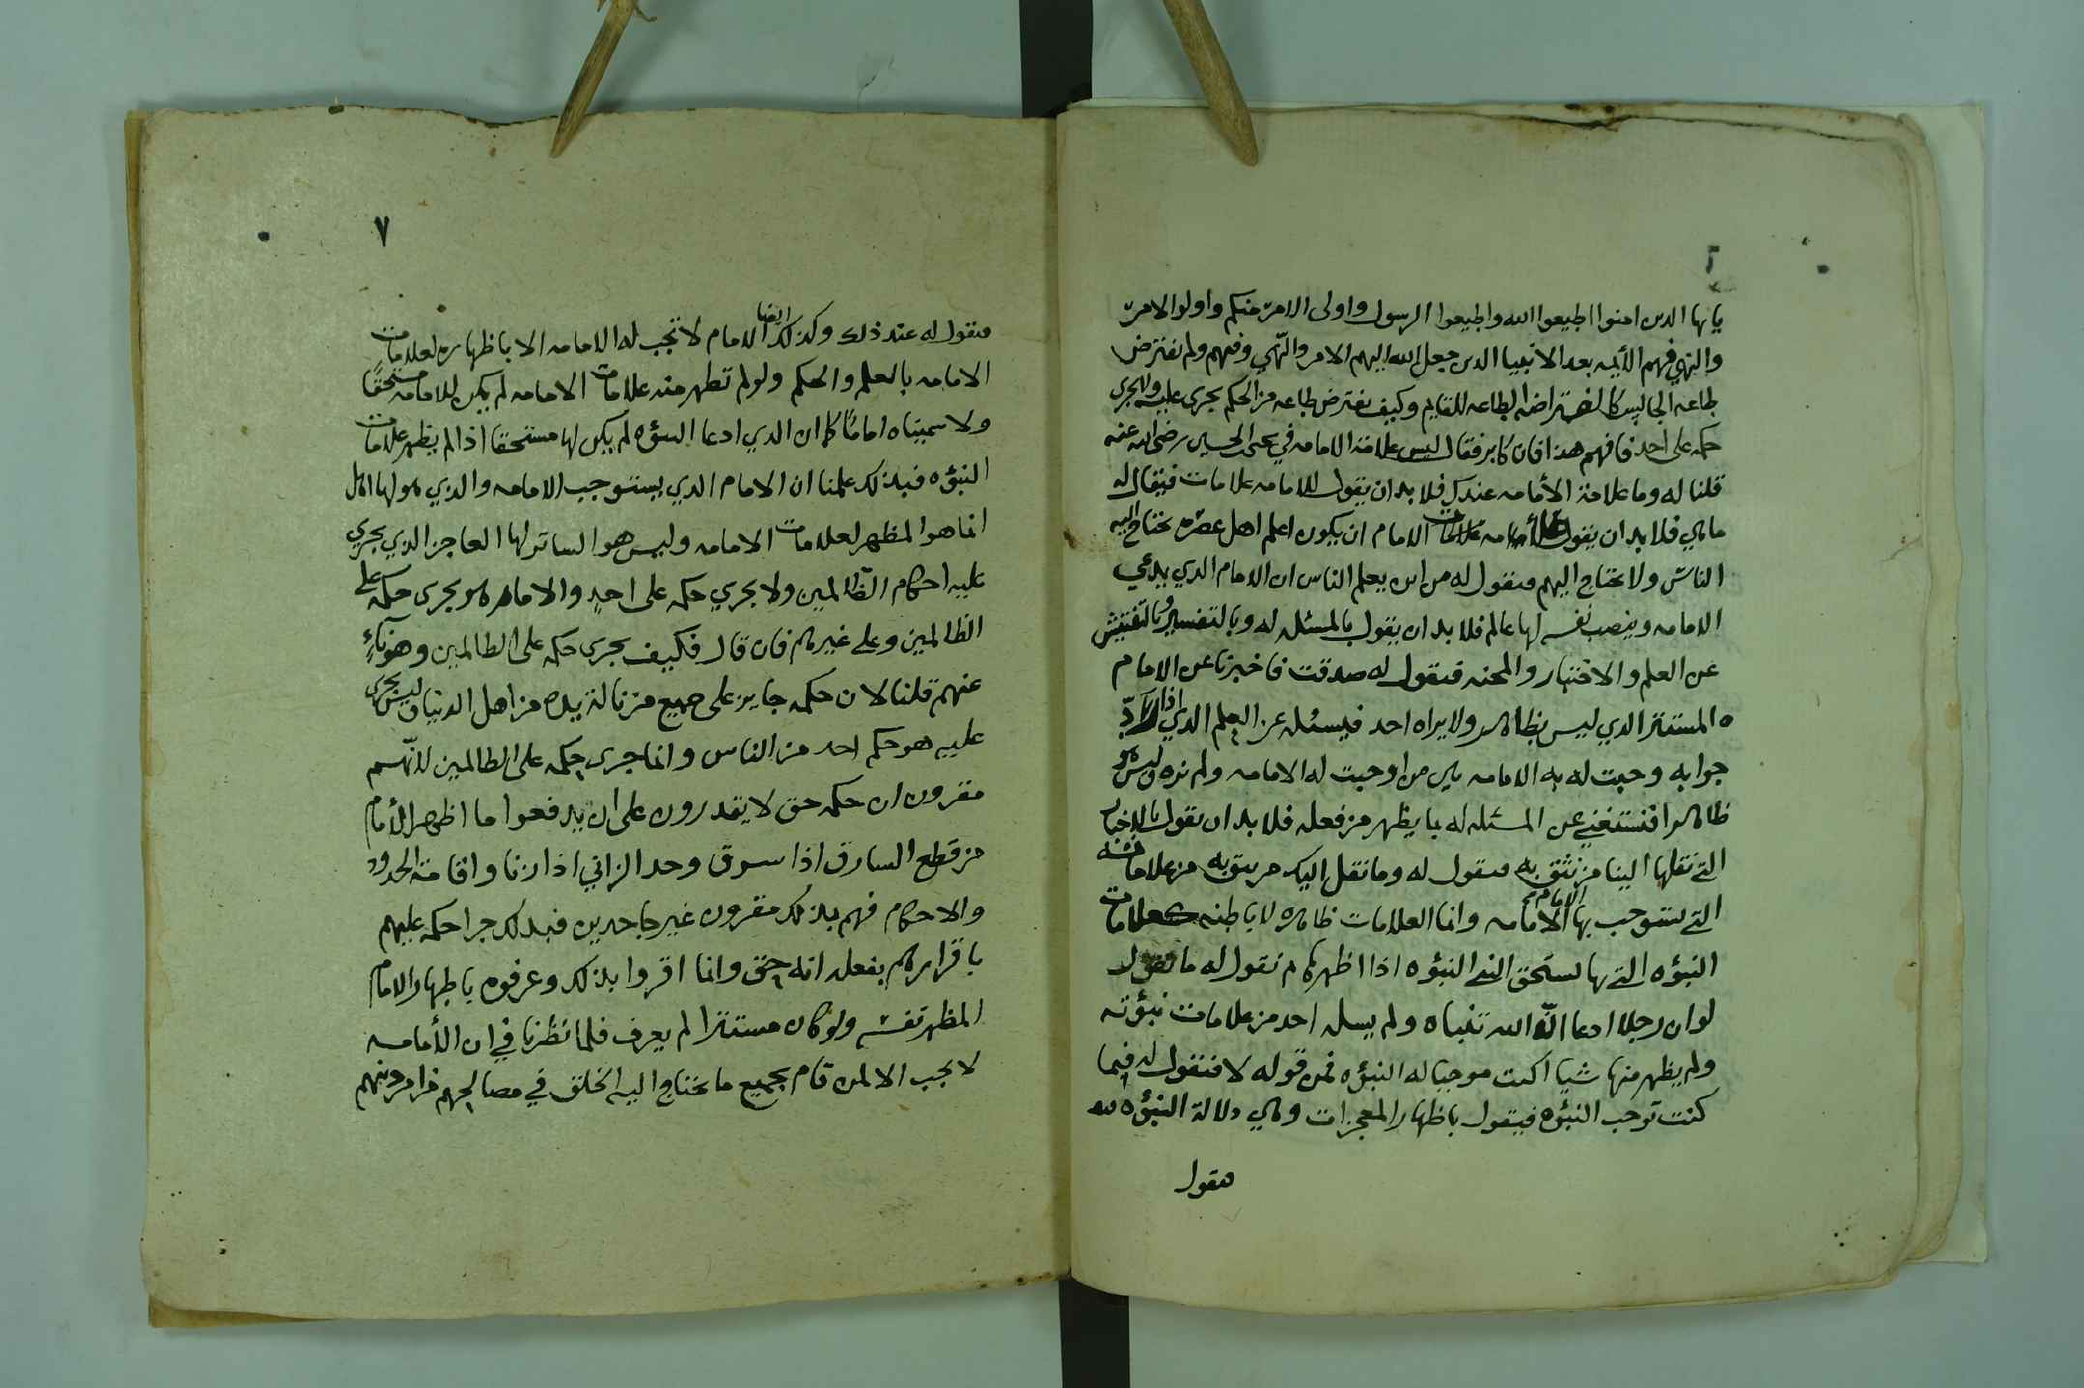 يايها الدين امنوا اطيعوا الله واطيعوا الرسول واولى الامر منكم واولوا الامر
والنهي فهم الأيمه بعد الانبيا الدين جعل الله اليهم الامر والنهي وفهم ولم نفترض
طاعه الجالس كالفتراضه الطاعه للقايم وكيف نفترض طاعه من الحكم يجرى عليه ولا يجرى
حكمه على احد فافهم هذا فان كابر فقال ليس علامة الامامه في يحيى الحسين رضى الله عنه
قلنا له وما علامة الأمامه عندك فلا بد ان يقول للامامه علامات فيقال له
ماهي فلا بد ان يقول الامام ان يكون اعلم اهل عصره نحتاج اليه
الناس ولا يحتاج اليهم فنقول له من اين يعلم الناس ان الامام الدي يدعي
الامامه وينصب نفسه لها عالم فلا بد ان يقول بالمسئله له وبالتفسير وبالتفتيش
عن العلم والاختبار والمحنه فنقول له صدقت فاخبرنا عن الامام
المستتر الدي ليس بظاهر ولا يراه احد فيسئله عن العلم الدي اذا
جوابه وجبت له به الامامه باي من اوجبت له الامامه ولم نره وليس هو
ظاهرا فنستغني عن المسئله له بما يظهر من فعله فلا بد ان يقول بالاخبار
التي نقلها الينا من نثق به فنقول له وما نقل اليك من يثق به من علاماته
التي يستوجب بها الامام الامامه وانما العلامات ظاهره لا باطنه كعلامات
النبؤه التي بها يستحق النبي النبؤه اذا اظهرها ثم نقول له ما تقول
لو ان رجلا ادعا ان الله تنباه ولم يسله احد من علامات نبؤته
ولم يظهر منها شيا اكنت موجبا له النبؤه فمن قوله لا فنقول له فيما
كنت توجب النبؤه فيقول باظهار المعجزات وهي دلالة النبؤه لله
فنقول
٧
فنقول له عند ذلك وكذلك ايضا الامام لا تجب له الامامه الا باظهاره لعلامات
الامامه بالعلم والحكم ولو لم تظهر منه علامات الامامه لم يكن للامامه مستحقا
ولا سميناه اماما كما ان الدي ادعا النبؤه لم يكن لها مستحقا اذا لم يظهر علامات
النبؤه فبذلك علمنا ان الامام الدي يستوجب الامامه والذي هو لها اهل
انما هو المظهر لعلامات الامامه وليس هو الساتر لها العاجز الذي يجري
عليه احكام الظالمين ولا يجري حكمه على احد والامام هو يجرى حكمه على
الظالمين وعلى غيرهم فان قال فكيف يجرى حكمه على الظالمين وهو ناء
عنهم قلنا لان حكمه جايز على جميع من نالة يده من اهل الدنيا وليس يجرى
عليه هو حكم احد من الناس وانما جرى حكمه على الظالمين لانهم
مقرون ان حكمه حق لا يقدرون على ان يدفعوا ما اظهر الأمام
من قطع السارق اذا سرق وحد الزاني اذا زنا واقامة الحدود
والاحكام فهم بذلك مقرون غير جاحدين فبدلك جرا حكمه عليهم
باقرارهم بفعله انه حق وانما اقروا بذلك وعرفوه باظهار الامام
المظهر نفسه ولو كان مستترا لم يعرف فلما نظرنا في ان الأمامه
لا تجب الا لمن قام بجميع ما يحتاج اليه الخلق في مصالحهم من امر دينهم